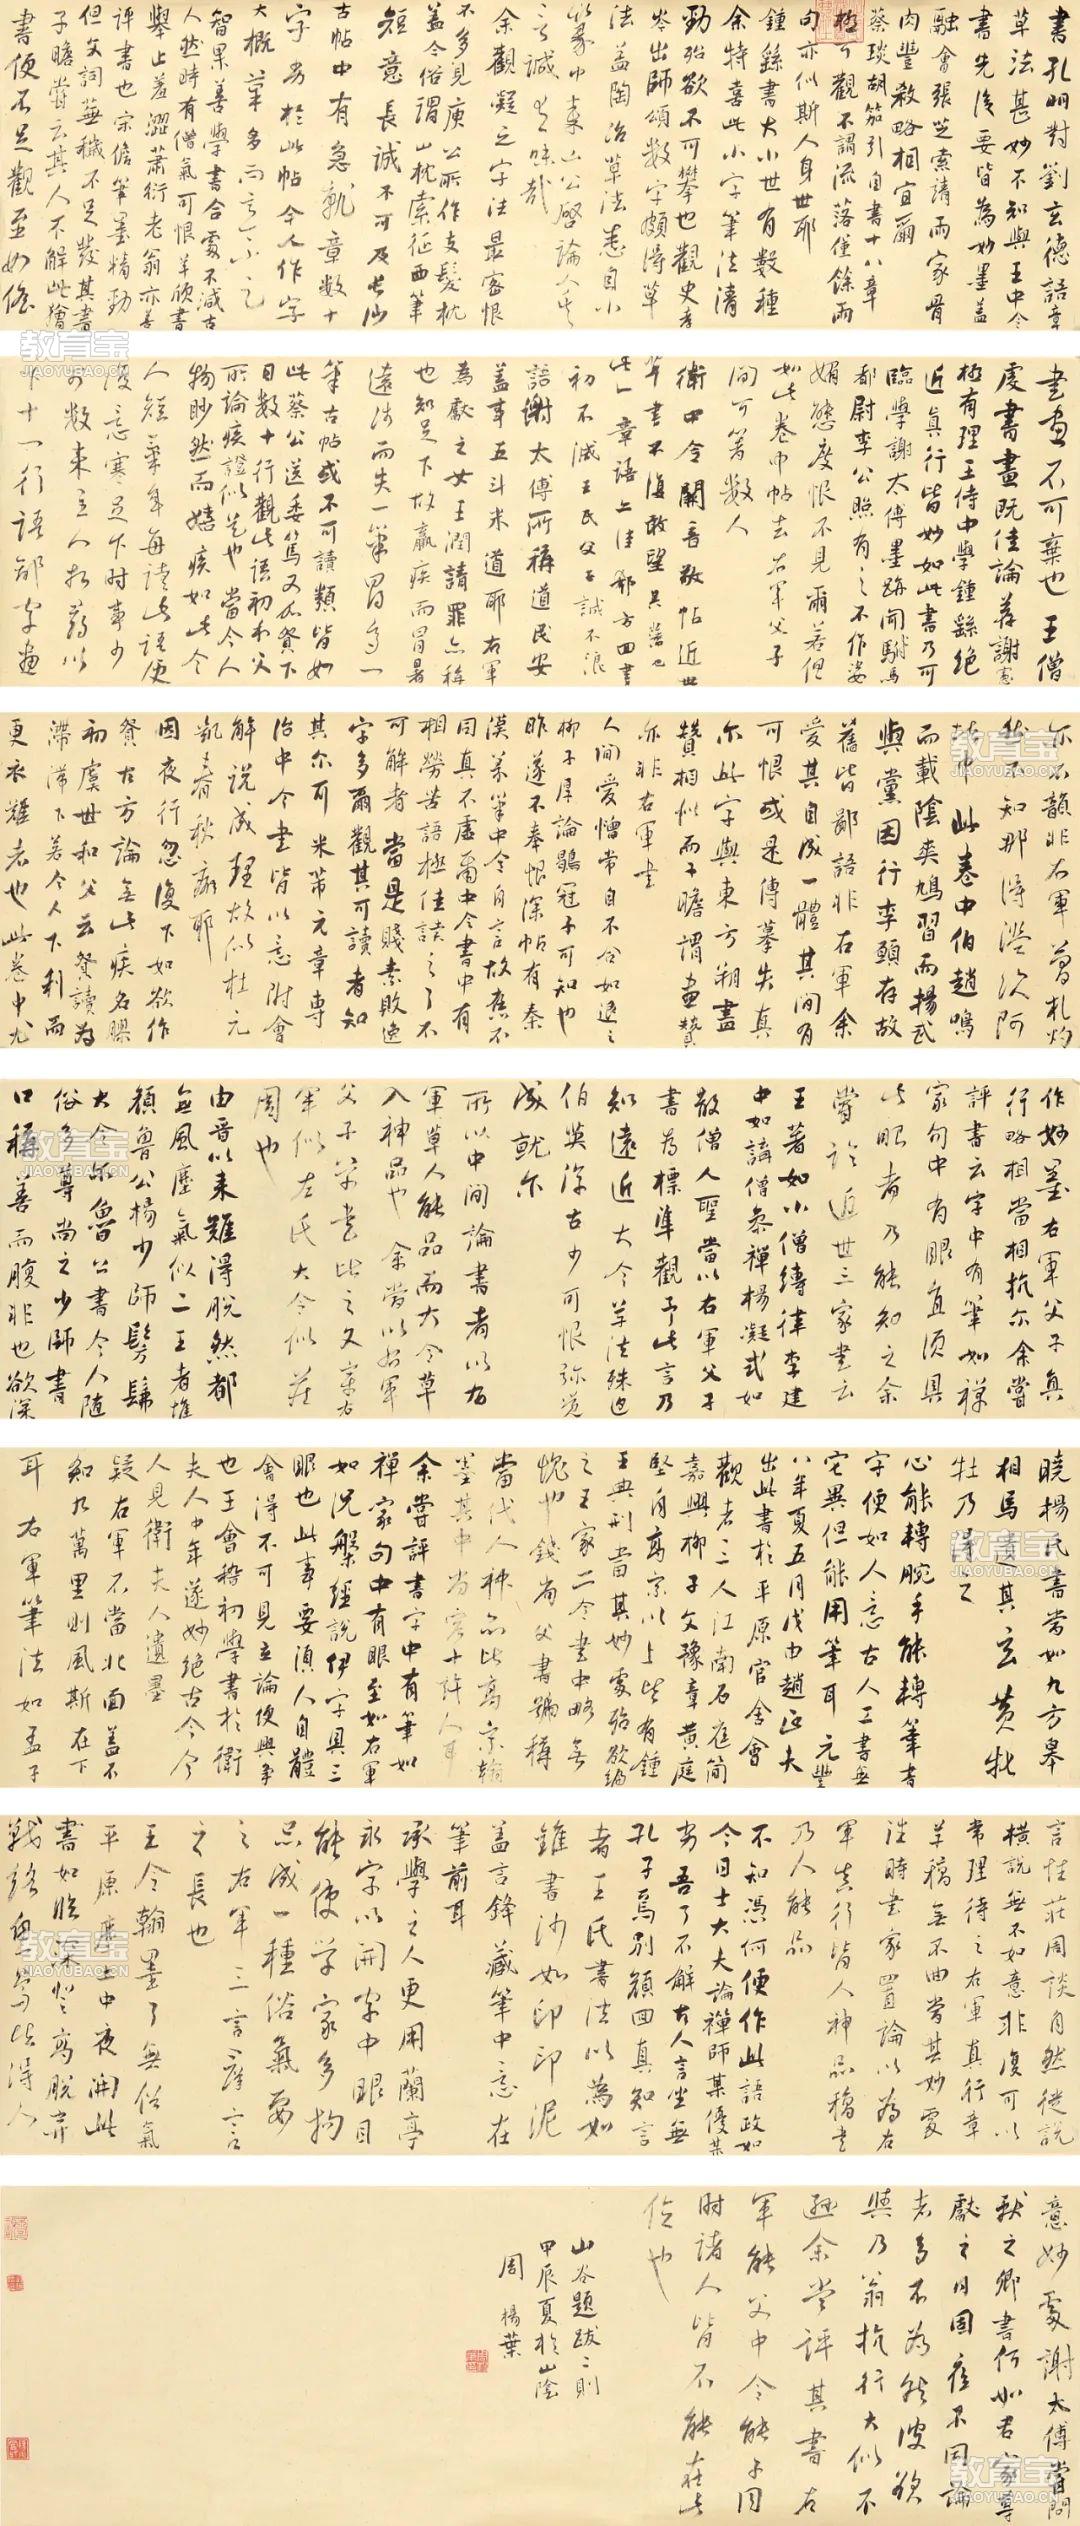 書孔明對劉玄德語章
草法甚妙不知與王中令
書先後要皆為妙墨蓋
融會張芝索靖兩家骨
肉豐殺略相宜爾
蔡琰胡笳引自書十八章
極可觀不謂流落僅餘兩
句亦似斯人身世耶
鍾繇書大小世有數種
余特喜此小字筆法清
勁殆欲不可攀也觀史孝
岑出師頌數字頗得草
法蓋陶冶草法悉自小
篆中來山公啓論人才
之誠之味哉
余觀凝之字法最密恨
不多見庾公所作支髮枕
蓋今俗謂山枕索征西筆
短意長誠不可及長沙
古帖中有急就章數十
字劣於此帖今人作字
大概筆多而意不足
智果善學書合處不減古
人然時有僧氣可恨羊欣書
舉止羞澀蕭衍老翁亦善
評書也宋儋筆墨精勁
但文詞蕪穢不足發其書
子瞻嘗云其人不解此狡獪
書便不足觀至如儋
書畫不可棄也王僧
虔書畫既佳論荐謝憲
極有理王侍中學鍾繇絕
近真行皆妙如此書乃可
臨學謝太傅墨跡聞駙馬
都尉李公照有之不作姿
媚態度恨不見爾若但
如此卷中帖去右軍父子
間可著數人
衛中令關音敬帖近世
草書不復敢望其藩也
此一章語上佳郗方回書
初不減王氏父子誠不浪
語謝太傅所稱道民安
蓋事五斗米道耶右軍
為獻之女王潤請罪亦稱
也知足下故羸疾而冒暑
遠涉而失一筆冒多一
筆古帖或不可讀類皆如
此蔡公遂委篤又加癈下
日數十行觀此語初不必
所論疾證似是也當今人
物眇然而嬉疾如此令
人短氣每讀此語便
復忘寒足下時事少
可數來主人相尋以
下十一行語鄙字畫
亦不韻非右軍簡札灼
然不知那得濫次阿
堵中 此卷中伯趙鳴
而載陰爽鳩習而揚武
與黨因行李頤存故
舊皆鄙語非右軍余
愛其自成一體其間有
可恨或是傳摹失真
尓此字與東方朔畫
贊相似而子瞻謂畫贊
亦非右軍書
人間愛憎常自不合如退之
柳子厚論鶡冠子可知也
昨遂不奉恨深帖有秦
漢篆筆中令自言故應不
同真不虛爾中令書中有
相勞苦語極佳讀之了不
可解者當是賤素敗逸
字多爾觀其可讀者知
其尓可 米芾元章專
治中令書皆以意附會
解說成理故似杜元
凱春秋癖耶
因夜行忽復下如欲作
癈古方論無此疾名縣
初虞世和父云癈讀為
滯滯下若今人下利而
更衣難者也此卷中尤
作妙墨右軍父子真
行略相當相抗尓余嘗
評書云字中有筆如禪
家句中有眼直須具
此眼者乃能知之余
嘗論近世三家書云
王著如小僧縛律李建
中如講僧參禪楊凝式如
散僧入聖當以右軍父子
書為標準觀予此言乃
知遠近大令草法殊迫
伯英淳古少可恨弥覺
成就尓
所以中間論書者以右
軍草入能品而大令草
入神品也余嘗以右軍
父子草書比之文章右
軍似左氏大令似莊
周也
由晋以來難得脫然都
無風塵氣似二王者惟
顏魯公楊少師髣髴
大令尓魯公書今人隨
俗多尊尚之少師書
口稱善而腹非也欲深
曉楊氏書當如九方皋
相馬遺其玄黃牝
牡乃得之
心能轉腕手能轉筆書
字便如人意古人工書無
它異但能用筆耳元豐
八年夏五月戊申趙正夫
出此書於平原官舍會
觀者三人江南石庭簡
嘉興柳子文豫章黃庭
堅自高宗以上皆有鍾
王典刑當其妙處殆欲編
之王家二令書中略無
愧也錢尚父書號稱
當代入神亦比高宗翰
墨其中尚容十許人耳
余嘗評書字中有筆如
禪家句中有眼至如右軍
如涅槃經說伊字具三
眼也此事要須人自體
會得不可見立論便興爭
也王會稽初學書於衛
夫人中年遂妙絕古今今
人見衛夫人遺墨
疑右軍不當北面蓋不
知九萬里則風斯在下
耳 右軍筆法如孟子
言性莊周談自然從說
橫說無不如意非復可以
常理待之右軍真行章
草稿無不曲當其妙處
往時書家置論以為右
軍真行皆入神品稿書
乃入能品
不知憑何便作此語政如
今日士大夫論禪師某優某
劣吾了不解古人言坐無
孔子焉別顏回真知言
者王氏書法以為如
錐畫沙如印印泥
蓋言鋒藏筆中意在
筆前耳
承學之人更用蘭亭
永字以開字中眼目
能使學家多拘
忌成一種俗氣要
之右軍二言群言
之長也
王令翰墨了無俗氣
平原塵土中夜開此
書如臨深登高脫棄
戰絡與豪傑得人
意妙處謝太傅嘗問
獻之卿書何如君家尊
獻之曰固應不同論
者多不為然彼欲
與乃翁抗行大似不
遜余嘗評其書右
軍能父中令能子同
時諸人皆不能在此
位也
山谷題跋二則
甲辰夏於山陰
周 楊葉